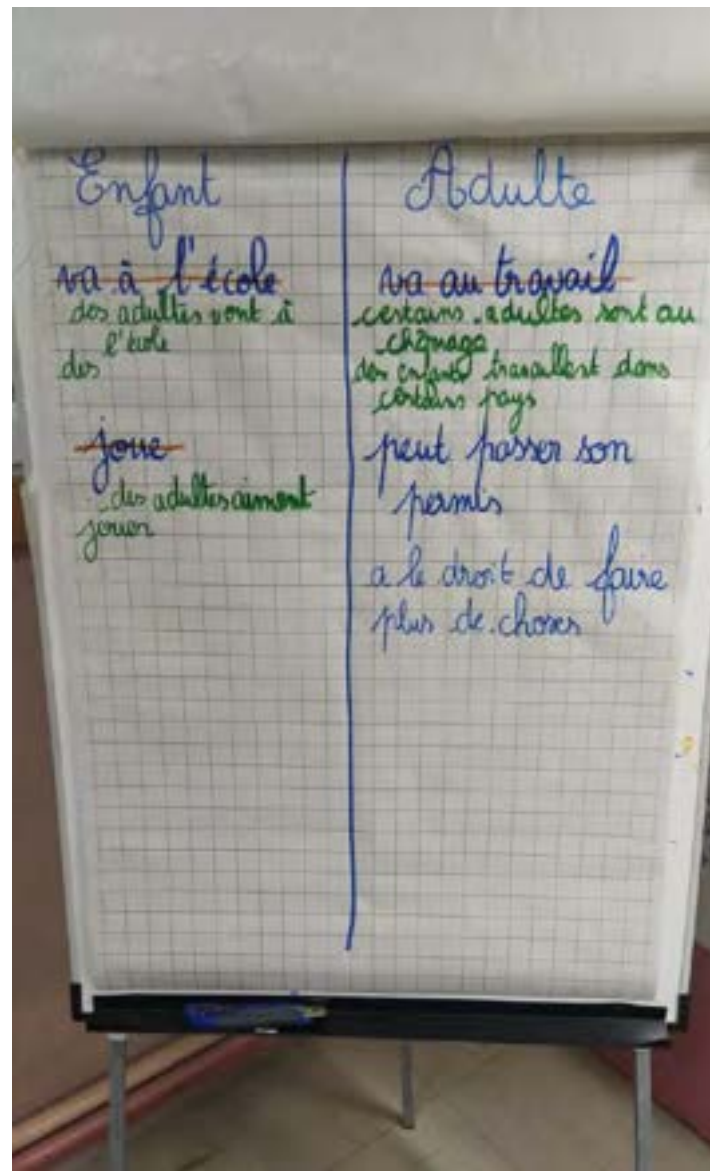 Enfant
va à l'école
des adultes vont à
l'école
des
joue
des adultes aiment
jouer
Adulte
va au travail
certains adultes sont au
chômage
des enfants travaillent dans
certains pays
peut passer son
permis
a le droit de faire
plus de choses